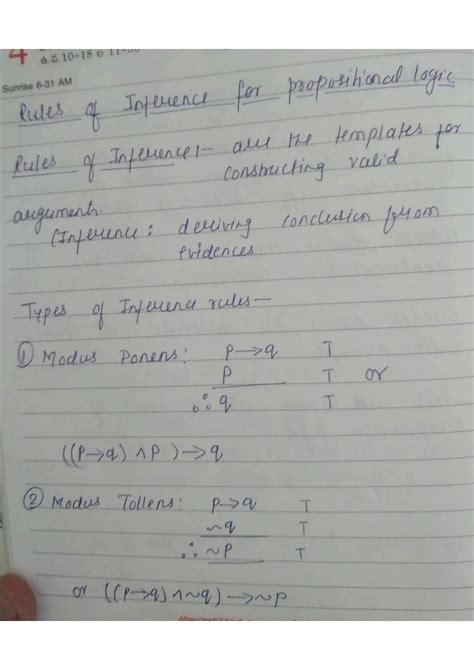 4
ಉ.ಶೆ. 10-18 ರ 11-
Sunrise 6-31 AM
Rules of Inference for propositional logic
Rules of Inference:- are the templates for
constructing valid
argument.
(Inference: deriving conclusion from
evidences.
Types of Inference rules—
① Modus Ponens: P→q T
P T or
∴ q T
((P→q) ∧ P) → q
② Modus Tollens: P→q T
~q T
∴ ~P T
or ((P→q) ∧ ~q) → ~P